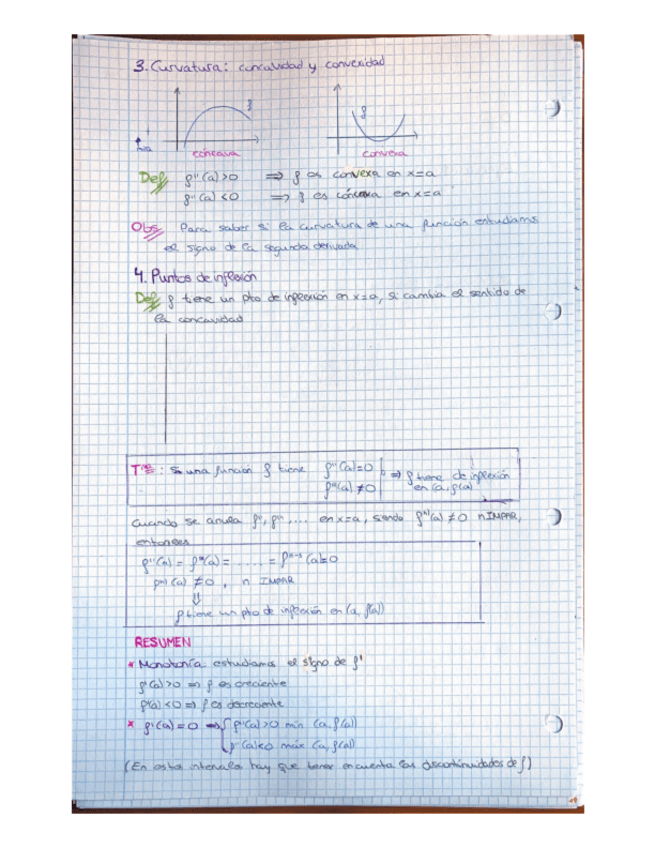 3. Curvatura: concavidad y convexidad
f f
cóncava convexa
Def f''(a)>0 ⇒ f es convexa en x=a
f''(a)<0 ⇒ f es cóncava en x=a
Obs Para saber si la curvatura de una función estudiamos
el signo de la segunda derivada
4. Puntos de inflexión
Def f tiene un pto de inflexión en x=a, si cambia el sentido de
la concavidad
Tma: Si una función f tiene f''(a)=0
f'''(a)≠0 ⇒ f tiene de inflexión
en (a, f(a))
Cuando se anula f'', f''', .... en x=a, siendo fⁿ⁾(a) ≠0 n IMPAR,
entonces
f''(a) = f'''(a) = ..... = fⁿ⁻¹(a)=0
fⁿ⁾(a) ≠0, n IMPAR
⇓
f tiene un pto de inflexión en (a, f(a))
RESUMEN
* Monotonía estudiamos el signo de f'
f'(a)>0 ⇒ f es creciente
f'(a)<0 ⇒ f es decreciente
* f'(a)=0 ⇒ { f''(a)>0 mín (a, f(a))
f''(a)<0 máx (a, f(a))
(En estos intervalos hay que tener en cuenta las discontinuidades de f)